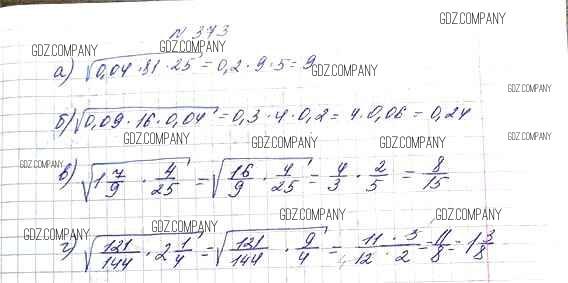 N 373
GDZ.COMPANY
GDZ.COMPANY GDZ.COMPANY
а) √0,04 · 81 · 25 = 0,2 · 9 · 5 = 9 GDZ.COMPANY
GDZ.COMPANY
б) √0,09 · 16 · 0,04 = 0,3 · 4 · 0,2 = 4 · 0,06 = 0,24
GDZ.COMPANY GDZ.COMPANY GDZ.COMPANY GDZ.COMPANY
GDZ.COMPANY
в) √1 7/9 · 4/25 = √16/9 · 4/25 = 4/3 · 2/5 = 8/15
GDZ.COMPANY GDZ.COMPANY
GDZ.COMPANY GDZ.COMPANY
г) √121/144 · 2 1/4 = √121/144 · 9/4 = 11 · 3/12 · 2 = 11/8 = 1 3/8